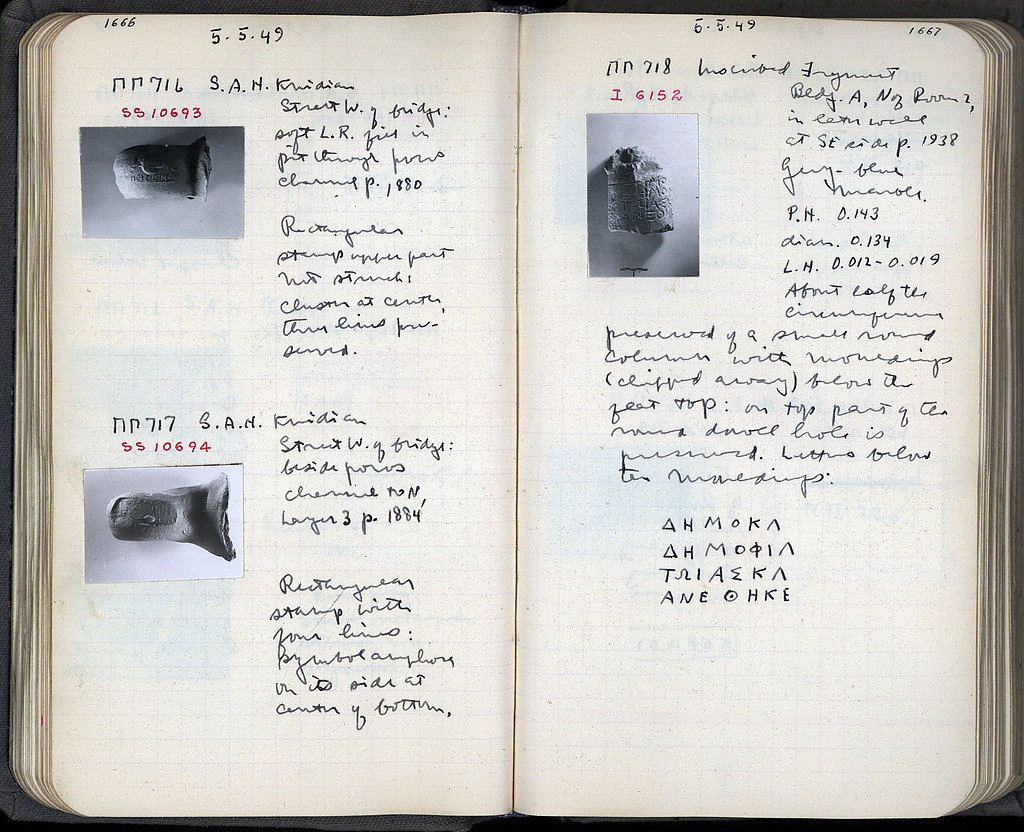 1666
5.5.49
ΠΠ 716 S.A.H. Knidian
SS 10693
Street W. of bridge:
soft L.R. fill in
pit through poros
channel p. 1880
Rectangular
stamp upper part
not struck:
cluster at center,
three lines pre-
served.
ΠΠ 717 S.A.H. Knidian
SS 10694
Street W. of bridge:
beside poros
channel to N,
Layer 3 p. 1884
Rectangular
stamp with
four lines:
Symbol amphora
on its side at
center of bottom.
5.5.49
1667
ΠΠ 718 Inscribed Fragment
I 6152
Bldg. A, N of Room 2,
in late wall
at SE side p. 1938
Grey-blue
marble.
P.H. 0.143
diam. 0.134
L.H. 0.012-0.019
About half the
circumference
preserved of a small round
column with mouldings
(chipped away) below the
flat top: on top part of the
round dowel hole is
preserved. Letters below
the mouldings:
ΔΗΜΟΚΛ
ΔΗΜΟΦΙΛ
ΤΩΙΑΣΚΛ
ΑΝΕΘΗΚΕ